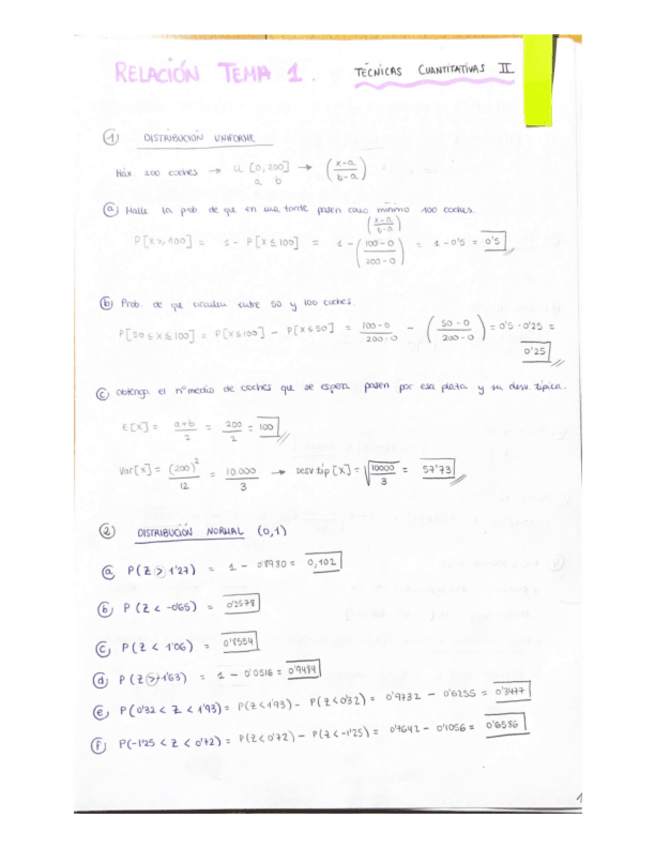 RELACIÓN TEMA 1. TÉCNICAS CUANTITATIVAS II
① DISTRIBUCIÓN UNIFORME
Máx. 200 coches → U [0,200] → (x-a / b-a)
a b
ⓐ Halle la prob. de que en una tarde pasen como mínimo 100 coches.
(x-a / b-a)
P[x ≥ 100] = 1 - P[x ≤ 100] = 1 - (100-0 / 200-0) = 1-0'5 = 0'5
ⓑ Prob. de que circulen entre 50 y 100 coches.
P[50 ≤ x ≤ 100] = P[x ≤ 100] - P[x ≤ 50] = 100-0 / 200-0 - (50-0 / 200-0) = 0'5 - 0'25 =
0'25
ⓒ Obtenga el nº medio de coches que se espera pasen por esa plaza y su desv. típica.
E[x] = a+b / 2 = 200 / 2 = 100
Var[x] = (200)² / 12 = 10.000 / 3 → Desv tip [x] = √10000 / 3 = 57'73
② DISTRIBUCIÓN NORMAL (0,1)
ⓐ P(Z > 1'27) = 1 - 0'8980 = 0,102
ⓑ P(Z < -0'65) = 0'2578
ⓒ P(Z < 1'06) = 0'8554
ⓓ P(Z > -1'63) = 1 - 0'0516 = 0'9484
ⓔ P(0'32 < Z < 1'93) = P(Z < 1'93) - P(Z < 0'32) = 0'9732 - 0'6255 = 0'3477
ⓕ P(-1'25 < Z < 0'72) = P(Z < 0'72) - P(Z < -1'25) = 0'7642 - 0'1056 = 0'6586
1